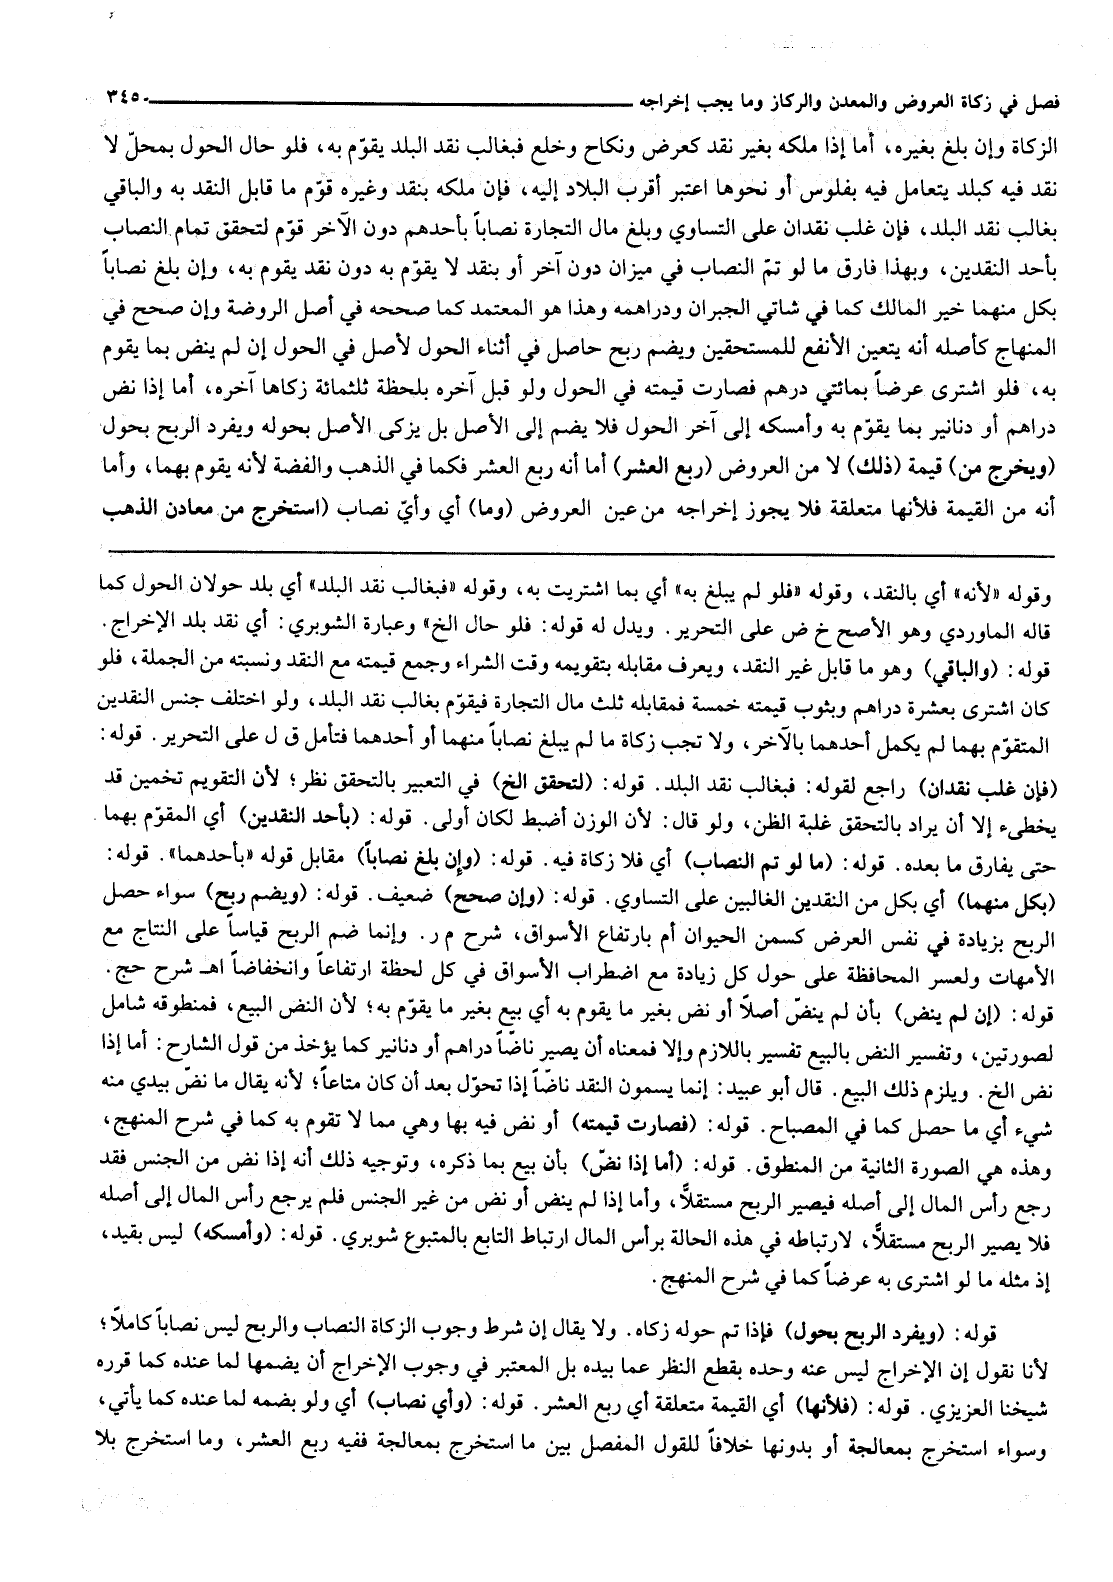 فصل في زكاة العروض والمعدن والركاز وما يجب إخراجه ٣٤٥
الزكاة وإن بلغ بغيره، أما إذا ملكه بغير نقد كعرض ونكاح وخلع فبغالب نقد البلد يقوّم به، فلو حال الحول بمحلّ لا
نقد فيه كبلد يتعامل فيه بفلوس أو نحوها اعتبر أقرب البلاد إليه، فإن ملكه بنقد وغيره قوّم ما قابل النقد به والباقي
بغالب نقد البلد، فإن غلب نقدان على التساوي وبلغ مال التجارة نصاباً بأحدهم دون الآخر قوّم لتحقق تمام النصاب
بأحد النقدين، وبهذا فارق ما لو تمّ النصاب في ميزان دون آخر أو بنقد لا يقوّم به دون نقد يقوم به، وإن بلغ نصاباً
بكل منهما خير المالك كما في شاتي الجبران ودراهمه وهذا هو المعتمد كما صححه في أصل الروضة وإن صحح في
المنهاج كأصله أنه يتعين الأنفع للمستحقين ويضم ربح حاصل في أثناء الحول لأصل في الحول إن لم ينض بما يقوم
به، فلو اشترى عرضاً بمائتي درهم فصارت قيمته في الحول ولو قبل آخره بلحظة ثلثمائة زكاها آخره، أما إذا نض
دراهم أو دنانير بما يقوّم به وأمسكه إلى آخر الحول فلا يضم إلى الأصل بل يزكى الأصل بحوله ويفرد الربح بحول
(ويخرج من) قيمة (ذلك) لا من العروض (ربع العشر) أما أنه ربع العشر فكما في الذهب والفضة لأنه يقوم بهما، وأما
أنه من القيمة فلأنها متعلقة فلا يجوز إخراجه من عين العروض (وما) أي وأيّ نصاب (استخرج من معادن الذهب
وقوله «لأنه» أي بالنقد، وقوله «فلو لم يبلغ به» أي بما اشتريت به، وقوله «فبغالب نقد البلد» أي بلد حولان الحول كما
قاله الماوردي وهو الأصح خ ض على التحرير. ويدل له قوله: فلو حال الخ» وعبارة الشوبري: أي نقد بلد الإخراج.
قوله: (والباقي) وهو ما قابل غير النقد، ويعرف مقابله بتقويمه وقت الشراء وجمع قيمته مع النقد ونسبته من الجملة، فلو
كان اشترى بعشرة دراهم وبثوب قيمته خمسة فمقابله ثلث مال التجارة فيقوّم بغالب نقد البلد، ولو اختلف جنس النقدين
المتقوّم بهما لم يكمل أحدهما بالآخر، ولا تجب زكاة ما لم يبلغ نصاباً منهما أو أحدهما فتأمل ق ل على التحرير. قوله:
(فإن غلب نقدان) راجع لقوله: فبغالب نقد البلد. قوله: (لتحقق الخ) في التعبير بالتحقق نظر؛ لأن التقويم تخمين قد
يخطىء إلا أن يراد بالتحقق غلبة الظن، ولو قال: لأن الوزن أضبط لكان أولى. قوله: (بأحد النقدين) أي المقوّم بهما
حتى يفارق ما بعده. قوله: (ما لو تم النصاب) أي فلا زكاة فيه. قوله: (وإن بلغ نصاباً) مقابل قوله «بأحدهما». قوله:
(بكل منهما) أي بكل من النقدين الغالبين على التساوي. قوله: (وإن صحح) ضعيف. قوله: (ويضم ربح) سواء حصل
الربح بزيادة في نفس العرض كسمن الحيوان أم بارتفاع الأسواق، شرح م ر. وإنما ضم الربح قياساً على النتاج مع
الأمهات ولعسر المحافظة على حول كل زيادة مع اضطراب الأسواق في كل لحظة ارتفاعاً وانخفاضاً اهـ شرح حج.
قوله: (إن لم ينض) بأن لم ينضّ أصلاً أو نض بغير ما يقوم به أي بيع بغير ما يقوّم به؛ لأن النض البيع، فمنطوقه شامل
لصورتين، وتفسير النض بالبيع تفسير باللازم وإلا فمعناه أن يصير ناضّاً دراهم أو دنانير كما يؤخذ من قول الشارح: أما إذا
نض الخ. ويلزم ذلك البيع. قال أبو عبيد: إنما يسمون النقد ناضّاً إذا تحوّل بعد أن كان متاعاً؛ لأنه يقال ما نضّ بيدي منه
شيء أي ما حصل كما في المصباح. قوله: (فصارت قيمته) أو نض فيه بها وهي مما لا تقوم به كما في شرح المنهج،
وهذه هي الصورة الثانية من المنطوق. قوله: (أما إذا نضّ) بأن بيع بما ذكره، وتوجيه ذلك أنه إذا نض من الجنس فقد
رجع رأس المال إلى أصله فيصير الربح مستقلًّا، وأما إذا لم ينض أو نض من غير الجنس فلم يرجع رأس المال إلى أصله
فلا يصير الربح مستقلًّا، لارتباطه في هذه الحالة برأس المال ارتباط التابع بالمتبوع شوبري. قوله: (وأمسكه) ليس بقيد،
إذ مثله ما لو اشترى به عرضاً كما في شرح المنهج.
قوله: (ويفرد الربح بحول) فإذا تم حوله زكاه. ولا يقال إن شرط وجوب الزكاة النصاب والربح ليس نصاباً كاملاً؛
لأنا نقول إن الإخراج ليس عنه وحده بقطع النظر عما بيده بل المعتبر في وجوب الإخراج أن يضمها لما عنده كما قرره
شيخنا العزيزي. قوله: (فلأنها) أي القيمة متعلقة أي ربع العشر. قوله: (وأي نصاب) أي ولو بضمه لما عنده كما يأتي،
وسواء استخرج بمعالجة أو بدونها خلافاً للقول المفصل بين ما استخرج بمعالجة ففيه ربع العشر، وما استخرج بلا